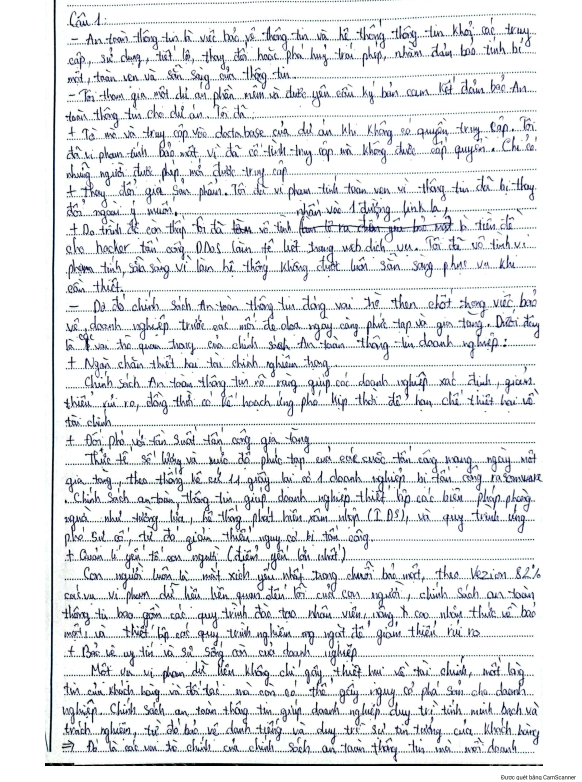 Câu 1:
- An toàn thông tin là việc bảo vệ thông tin và hệ thống thông tin khỏi các truy
cập, sử dụng, tiết lộ, thay đổi hoặc phá huỷ trái phép, nhằm đảm bảo tính bí
mật, toàn vẹn và sẵn sàng của thông tin.
- Tôi tham gia một dự án phần mềm và được yêu cầu ký bản cam kết đảm bảo An
toàn thông tin cho dự án. Tôi đã:
+ Tò mò và truy cập vào database của dự án khi không có quyền truy cập. Tôi
đã vi phạm tính bảo mật vì đã cố tình truy cập mà không được cấp quyền. Chỉ có
những người được phép mới được truy cập
+ Thay đổi giá sản phẩm. Tôi đã vi phạm tính toàn vẹn vì thông tin đã bị thay
đổi ngoài ý muốn.
+ Do trình độ còn thấp tôi đã vô tình nhấn vào 1 đường link lạ tiền đề
cho hacker tấn công DDos làm tê liệt trang web dịch vụ. Tôi đã vô tình vi
phạm tính sẵn sàng vì làm hệ thống không được luôn sẵn sàng phục vụ khi
cần thiết.
- Do đó chính sách An toàn thông tin đóng vai trò then chốt trong việc bảo
vệ doanh nghiệp trước các mối đe dọa ngày càng phức tạp và gia tăng. Dưới đây
là vai trò quan trọng của chính sách An toàn thông tin doanh nghiệp:
+ Ngăn chặn thiệt hại tài chính nghiêm trọng
Chính sách An toàn thông tin rõ ràng giúp các doanh nghiệp xác định, giảm
thiểu rủi ro, đồng thời có kế hoạch ứng phó kịp thời để hạn chế thiệt hại về
tài chính
+ Đối phó với tần suất tấn công gia tăng
Thực tế số lượng và mức độ phức tạp của các cuộc tấn công mạng ngày một
gia tăng, theo thống kê cứ 11 giây lại có 1 doanh nghiệp bị tấn công ransomware
. Chính sách an toàn thông tin giúp doanh nghiệp thiết lập các biện pháp phòng
ngừa như tường lửa, hệ thống phát hiện xâm nhập (IDS), và quy trình ứng
phó sự cố, từ đó giảm thiểu nguy cơ bị tấn công
+ Quản lí yếu tố con người (điểm yếu lớn nhất)
Con người luôn là mắt xích yếu nhất trong chuỗi bảo mật, theo Vezion 82%
các vụ vi phạm dữ liệu liên quan đến lỗi của con người, chính sách an toàn
thông tin bao gồm các quy trình đào tạo nhân viên, nâng cao nhận thức về bảo
mật, và thiết lập các quy trình nghiêm ngặt để giảm thiểu rủi ro
+ Bảo vệ uy tín và sự sống còn của doanh nghiệp
Một vụ vi phạm dữ liệu không chỉ gây thiệt hại về tài chính, mất lòng
tin của khách hàng và đối tác mà còn có thể gây nguy cơ phá sản cho doanh
nghiệp. Chính sách an toàn thông tin giúp doanh nghiệp duy trì tính minh bạch và
trách nhiệm, từ đó bảo vệ danh tiếng và duy trì sự tin tưởng của khách hàng
⇒ Đó là các vai trò chính của chính sách an toàn thông tin mà mỗi doanh
Được quét bằng CamScanner